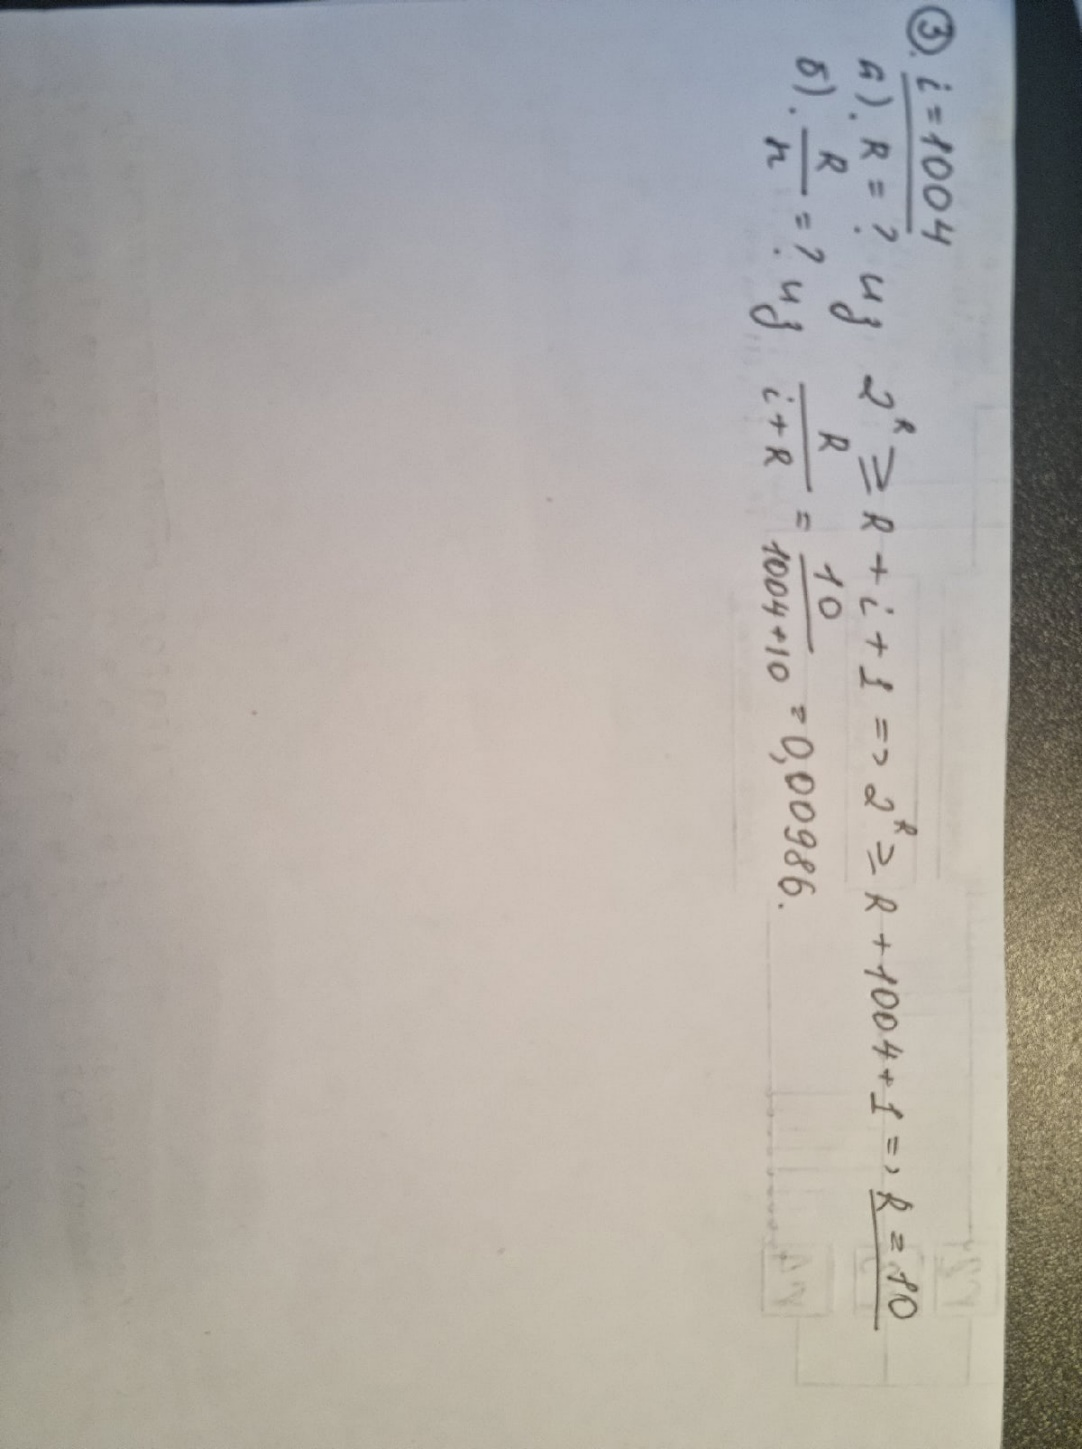 ③. i=1004
а). R=? из 2ᴿ ≥ R+i+1 => 2ᴿ ≥ R+1004+1 => R=10
б). R/n =? из R/(i+R) = 10/(1004+10) = 0,00986.